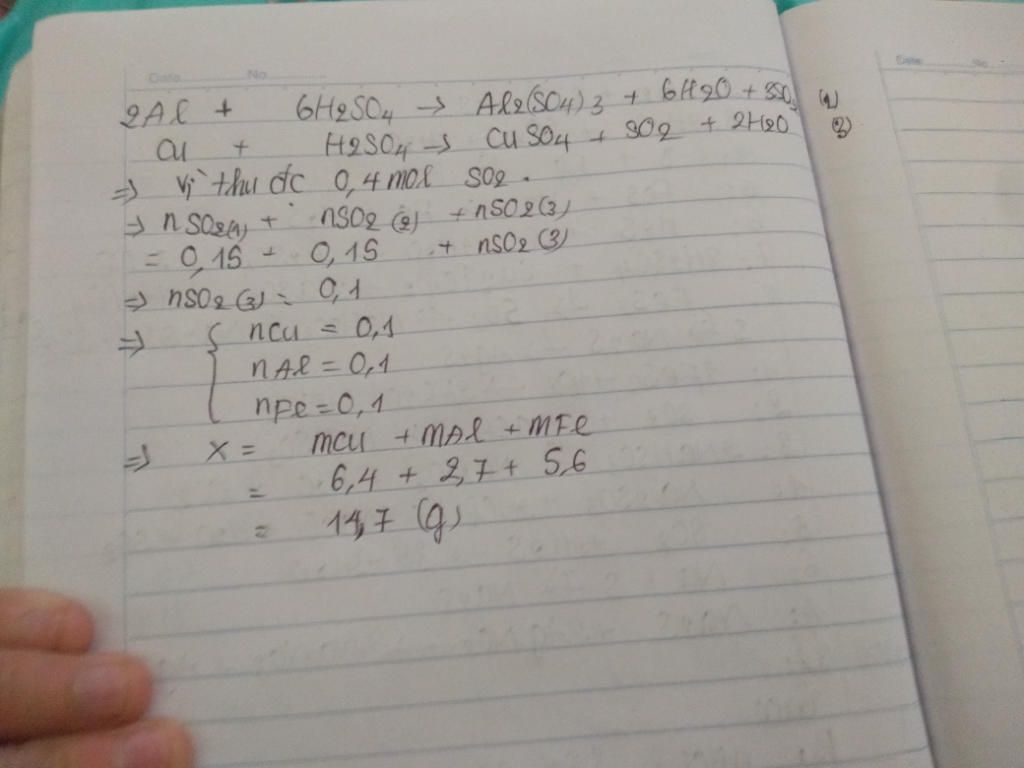 Date No
2Al + 6H2SO4 → Al2(SO4)3 + 6H2O + 3SO2 (1)
Cu + H2SO4 → CuSO4 + SO2 + 2H2O (3)
=> Vì thu đc 0,4 mol SO2.
=> nSO2(1) + nSO2(2) + nSO2(3)
= 0,15 + 0,15 + nSO2(3)
=> nSO2(3) = 0,1
=> { nCu = 0,1
nAl = 0,1
nFe = 0,1
=> X = mCu + mAl + mFe
= 6,4 + 2,7 + 5,6
= 14,7 (g)
Date No